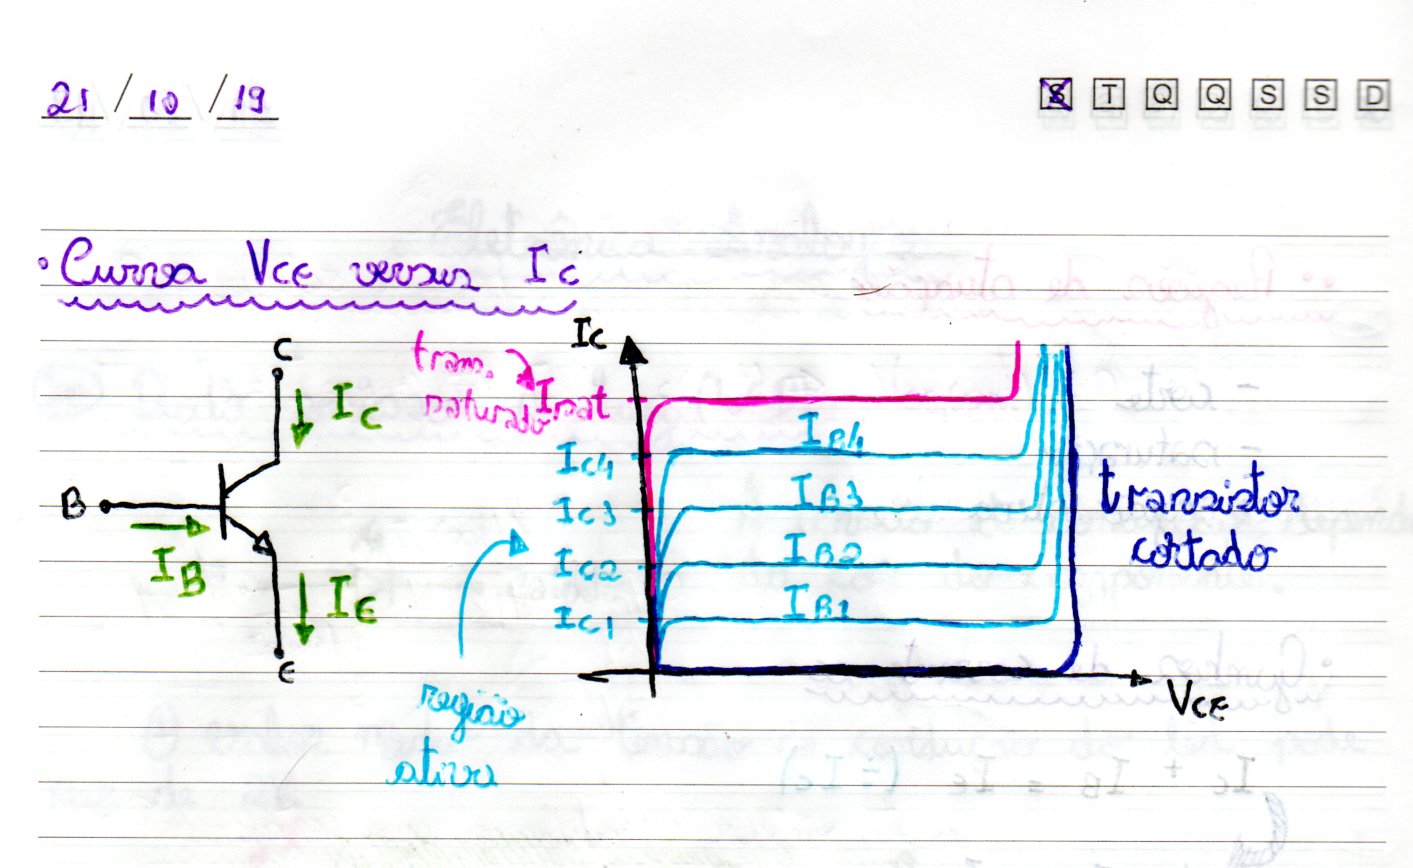 21 / 10 / 19
S T Q Q S S D
• Curva VCE versus IC
C
IC
B
IB
IE
E
trans.
saturado
IC
Isat
IC4
IC3
IC2
IC1
IB4
IB3
IB2
IB1
transistor
cortado
VCE
região
ativa